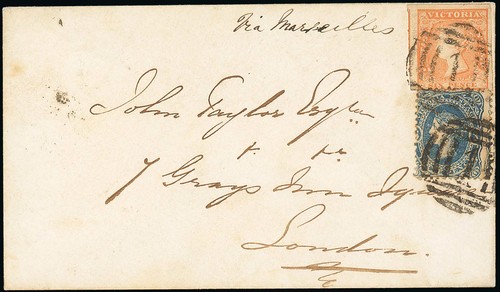 Via Marseilles
VICTORIA
1
John Taylor Esqre
7 Grays Inn Sqre
London